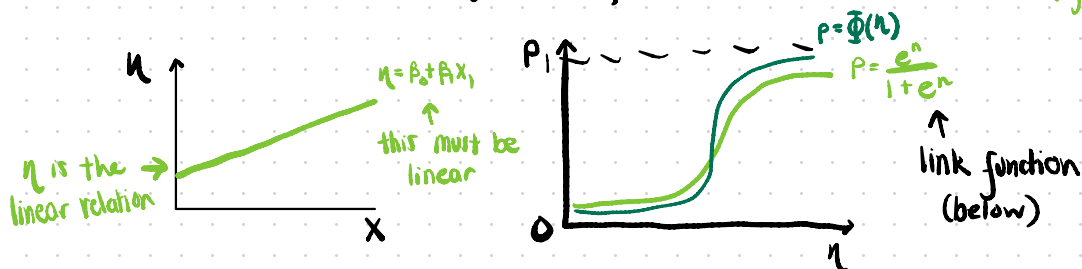 η
η = β₀ + β₁X₁
↑
this must be
linear
η is the →
linear relation
X
P
1
p = Φ(η)
p = e^η / 1 + e^η
↑
link function
(below)
0
η